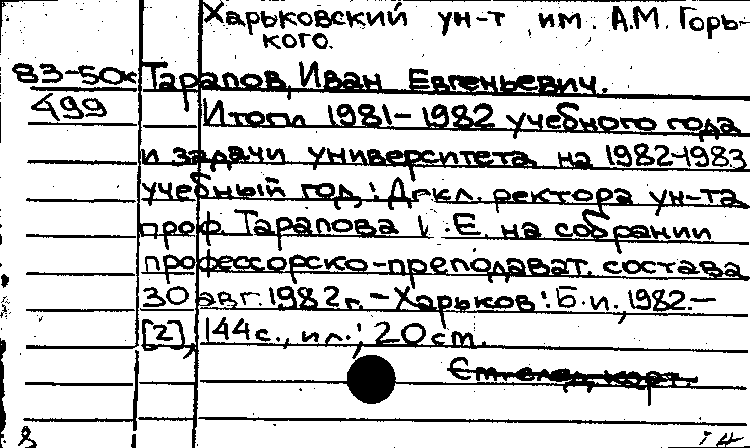 Харьковский ун-т им. А.М. Горь-
кого.
83-50к Тарапов, Иван Евгеньевич.
499 Итоги 1981-1982 учебного года
и задачи университета на 1982-1983
учебный год: Докл. ректора ун-та
проф. Тарапова И.Е. на собрании
профессорско-преподават. состава
30 авг. 1982 г. - Харьков: Б.и., 1982.-
[2], 144 с., ил.; 20 см.
8